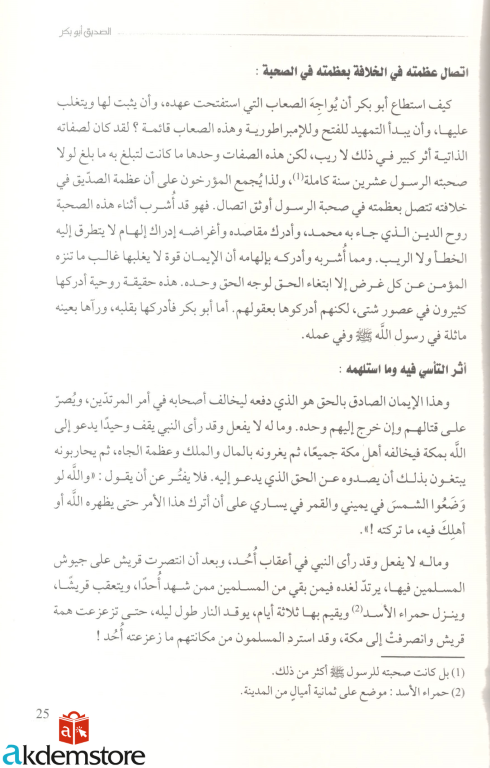 الصديق أبو بكر
اتصال عظمته في الخلافة بعظمته في الصحبة :
كيف استطاع أبو بكر أن يُواجِهَ الصعاب التي استفتحت عهده، وأن يثبت لها ويتغلب
عليهـا، وأن يبـدأ التمهيد للفتح وللإمبراطورية وهذه الصعاب قائمـة ؟ لقد كان لصفاته
الذاتيـة أثر كبير في ذلك لا ريب، لكن هذه الصفات وحدها ما كانت لتبلغ به ما بلغ لولا
صحبته الرسول عشرين سنة كاملة(1)، ولذا يُجمع المؤرخون على أن عظمة الصدّيق في
خلافته تتصل بعظمته في صحبة الرسول أوثق اتصال. فهو قد أُشرب أثناء هذه الصحبة
روح الديـن الـذي جـاء به محمـد، وأدرك مقاصـده وأغراضـه إدراك إلهـام لا يتطـرق إليه
الخطـأ ولا الريـب. وممـا أُشـربه وأدركـه بإلهامـه أن الإيمـان قوة لا يغلبهـا غالب مـا تنزه
المؤمـن عـن كل غـرض إلا ابتغاء الحـق لوجه الحق وحـده. هذه حقيقـة روحية أدركها
كثيرون في عصور شتى، لكنهم أدركوها بعقولهم. أما أبو بكر فأدركها بقلبه، ورآها بعينه
ماثلة في رسول اللَّه ﷺ وفي عمله.
أثـر التأسي فيه وما استلهمه :
وهـذا الإيمـان الصادق بالحق هو الذي دفعه ليخالف أصحابه في أمر المرتدّين، ويُصرّ
علـى قتالهـم وإن خـرج إليهم وحده. وما له لا يفعل وقد رأى النبي يقف وحيدًا يدعو إلى
اللَّه بمكة فيخالفه أهل مكة جميعًا، ثم يغرونه بالمال والملك وعظمة الجاه، ثم يحاربونه
يبتغـون بذلـك أن يصدوه عـن الحق الذي يدعو إليه. فلا يفتُـر عن أن يقول : «واللَّه لو
وَضَعُوا الشمسَ في يميني والقمر في يساري على أن أترك هذا الأمر حتى يظهره اللَّه أو
أهلِكَ فيه، ما تركته !».
وماله لا يفعل وقد رأى النبي في أعقاب أُحُـد، وبعد أن انتصرت قريش على جيوش
المسـلمين فيهـا، يرتدّ لغده فيمن بقي من المسلمين ممن شهد أُحدًا، ويتعقب قريشًـا،
وينـزل حمراء الأسـد(2) ويقيم بهـا ثلاثة أيام، يوقـد النار طول ليله، حتـى تزعزعت همة
قريش وانصرفتْ إلى مكة، وقد استرد المسلمون من مكانتهم ما زعزعته أُحُد !
(1) بل كانت صحبته للرسول ﷺ أكثر من ذلك.
(2) حمراء الأسد : موضع على ثمانية أميال من المدينة.
25
a
akdemstore